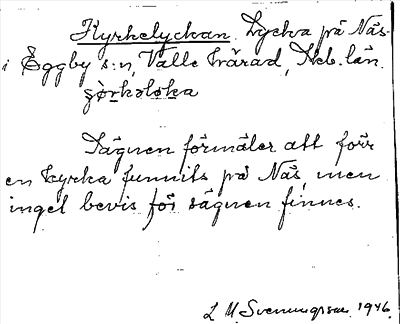 Kyrkelyckan. Lycka på Näs
i Eggby s:n, Valle härad, Skb. län.
Sägnen förmäler att förr
en kyrka funnits på Näs, men
inget bevis för sägnen finnes.
L M Svenungsson 1946.